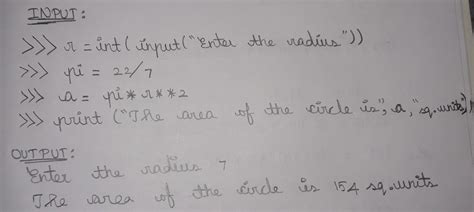 INPUT:
>>> r = int(input("Enter the radius"))
>>> pi = 22/7
>>> a = pi*r**2
>>> print ("The area of the circle is", a, "sq.units"))
OUTPUT:
Enter the radius 7
The area of the circle is 154 sq.units